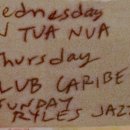 Wednesday
N TUA NUA
Thursday
LUB CARIBE
SUNDAY
RYLES JAZZ